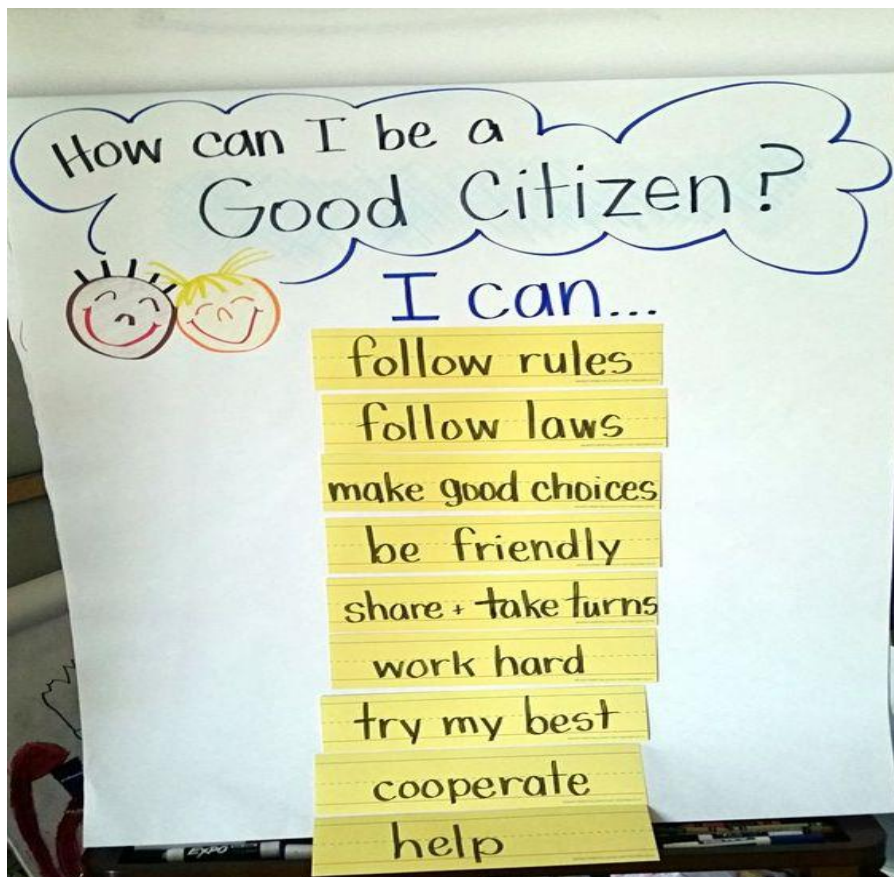 How can I be a
Good Citizen?
I can...
follow rules
follow laws
make good choices
be friendly
share + take turns
work hard
try my best
cooperate
help
EXPO